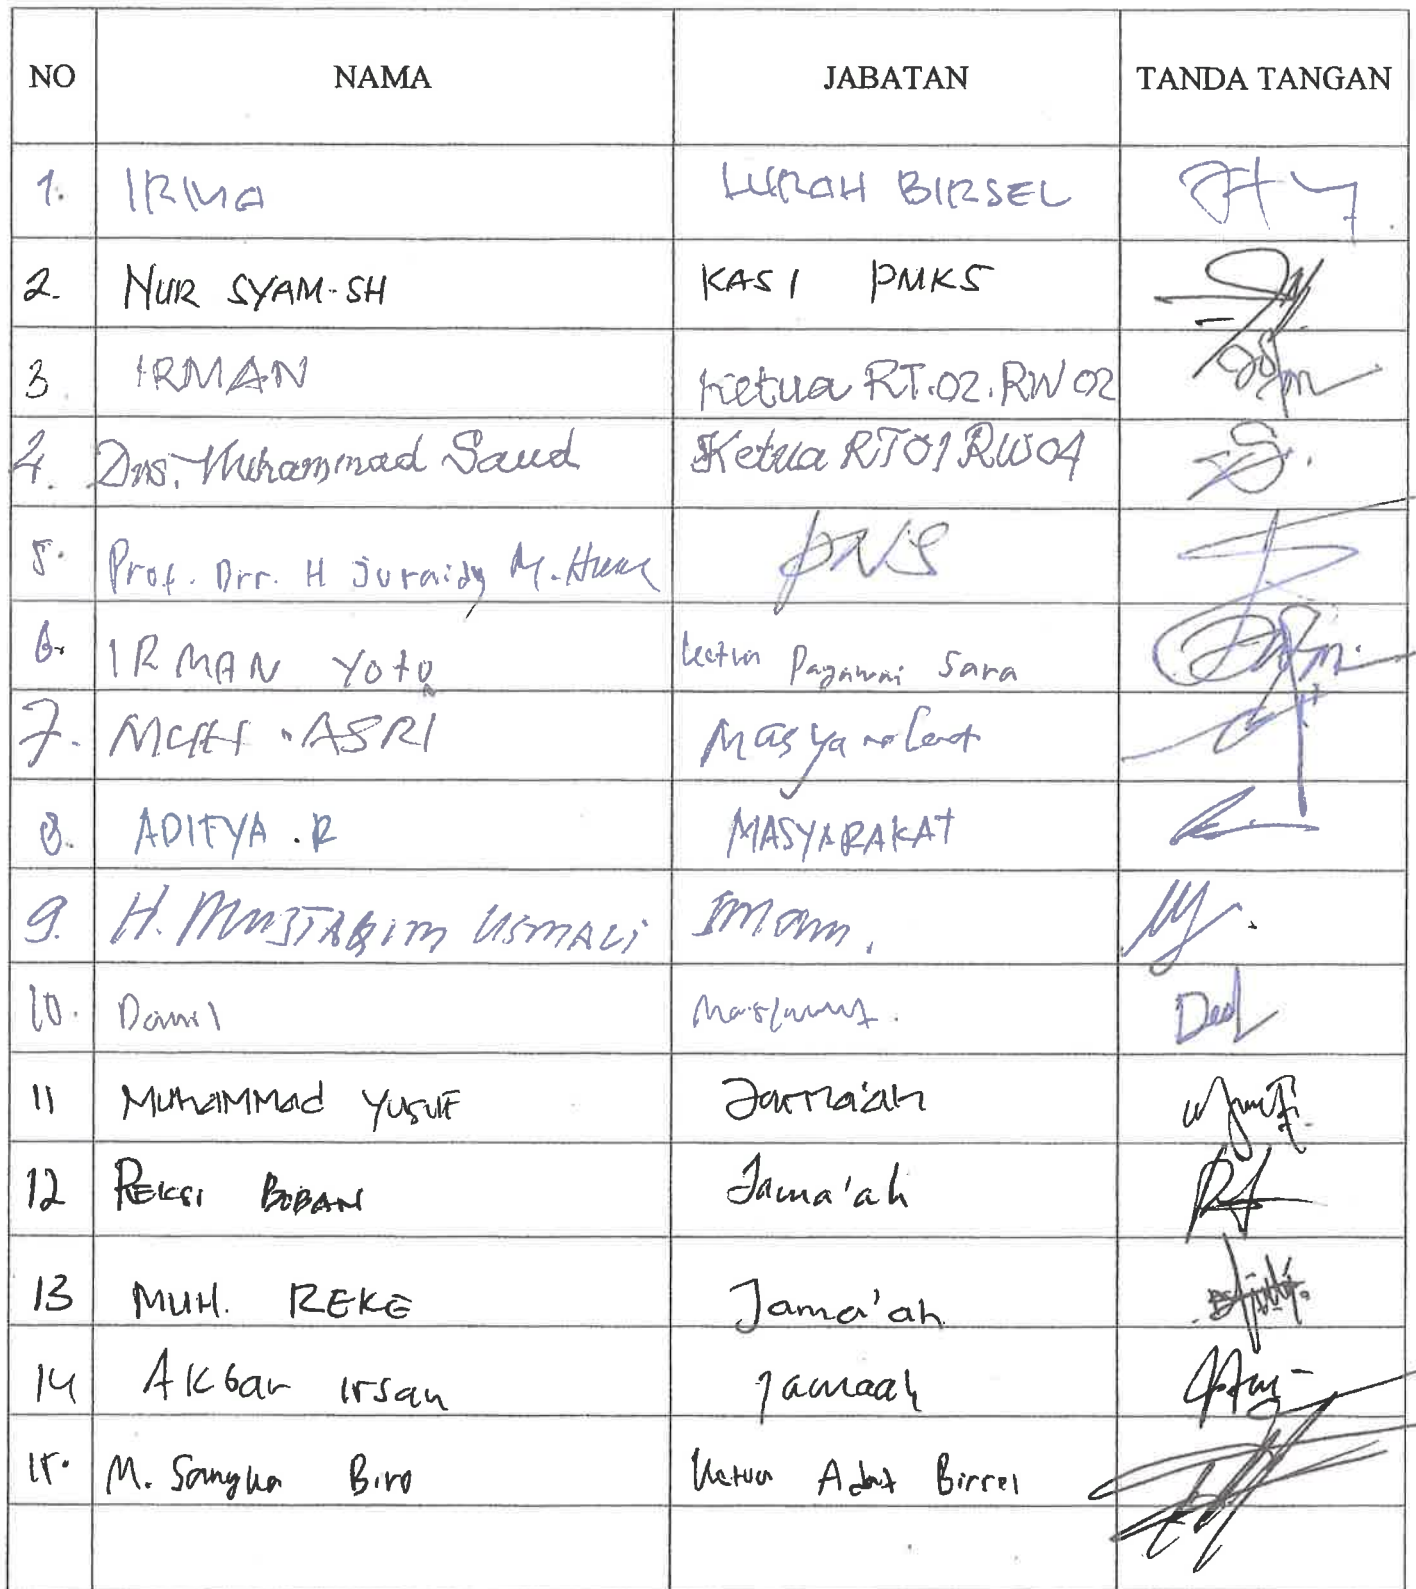 NO NAMA JABATAN TANDA TANGAN
1. IRMA LURAH BIRSEL
2. NUR SYAM.SH KASI PMKS
3 IRMAN Ketua RT.02.RW 02
4. Drs. Muhammad Saud Ketua RT01 RW04
5. Prof. Drr. H Juraidy M.Hum PNS
6. IRMAN Yoto Ketua Pegawai Sara
7. MUH. ASRI Masyarakat
8. ADITYA .R MASYARAKAT
9. H. MUSTAQIM USMALI Imam.
10. Danil
11 MUHAMMAD YUSUF Jama'ah
12 REKSI BOBAN Jama'ah
13 MUH. REKE Jama'ah
14 Akbar irsan jamaah
15. M. Sangka Biro Ketua Adat Birsel